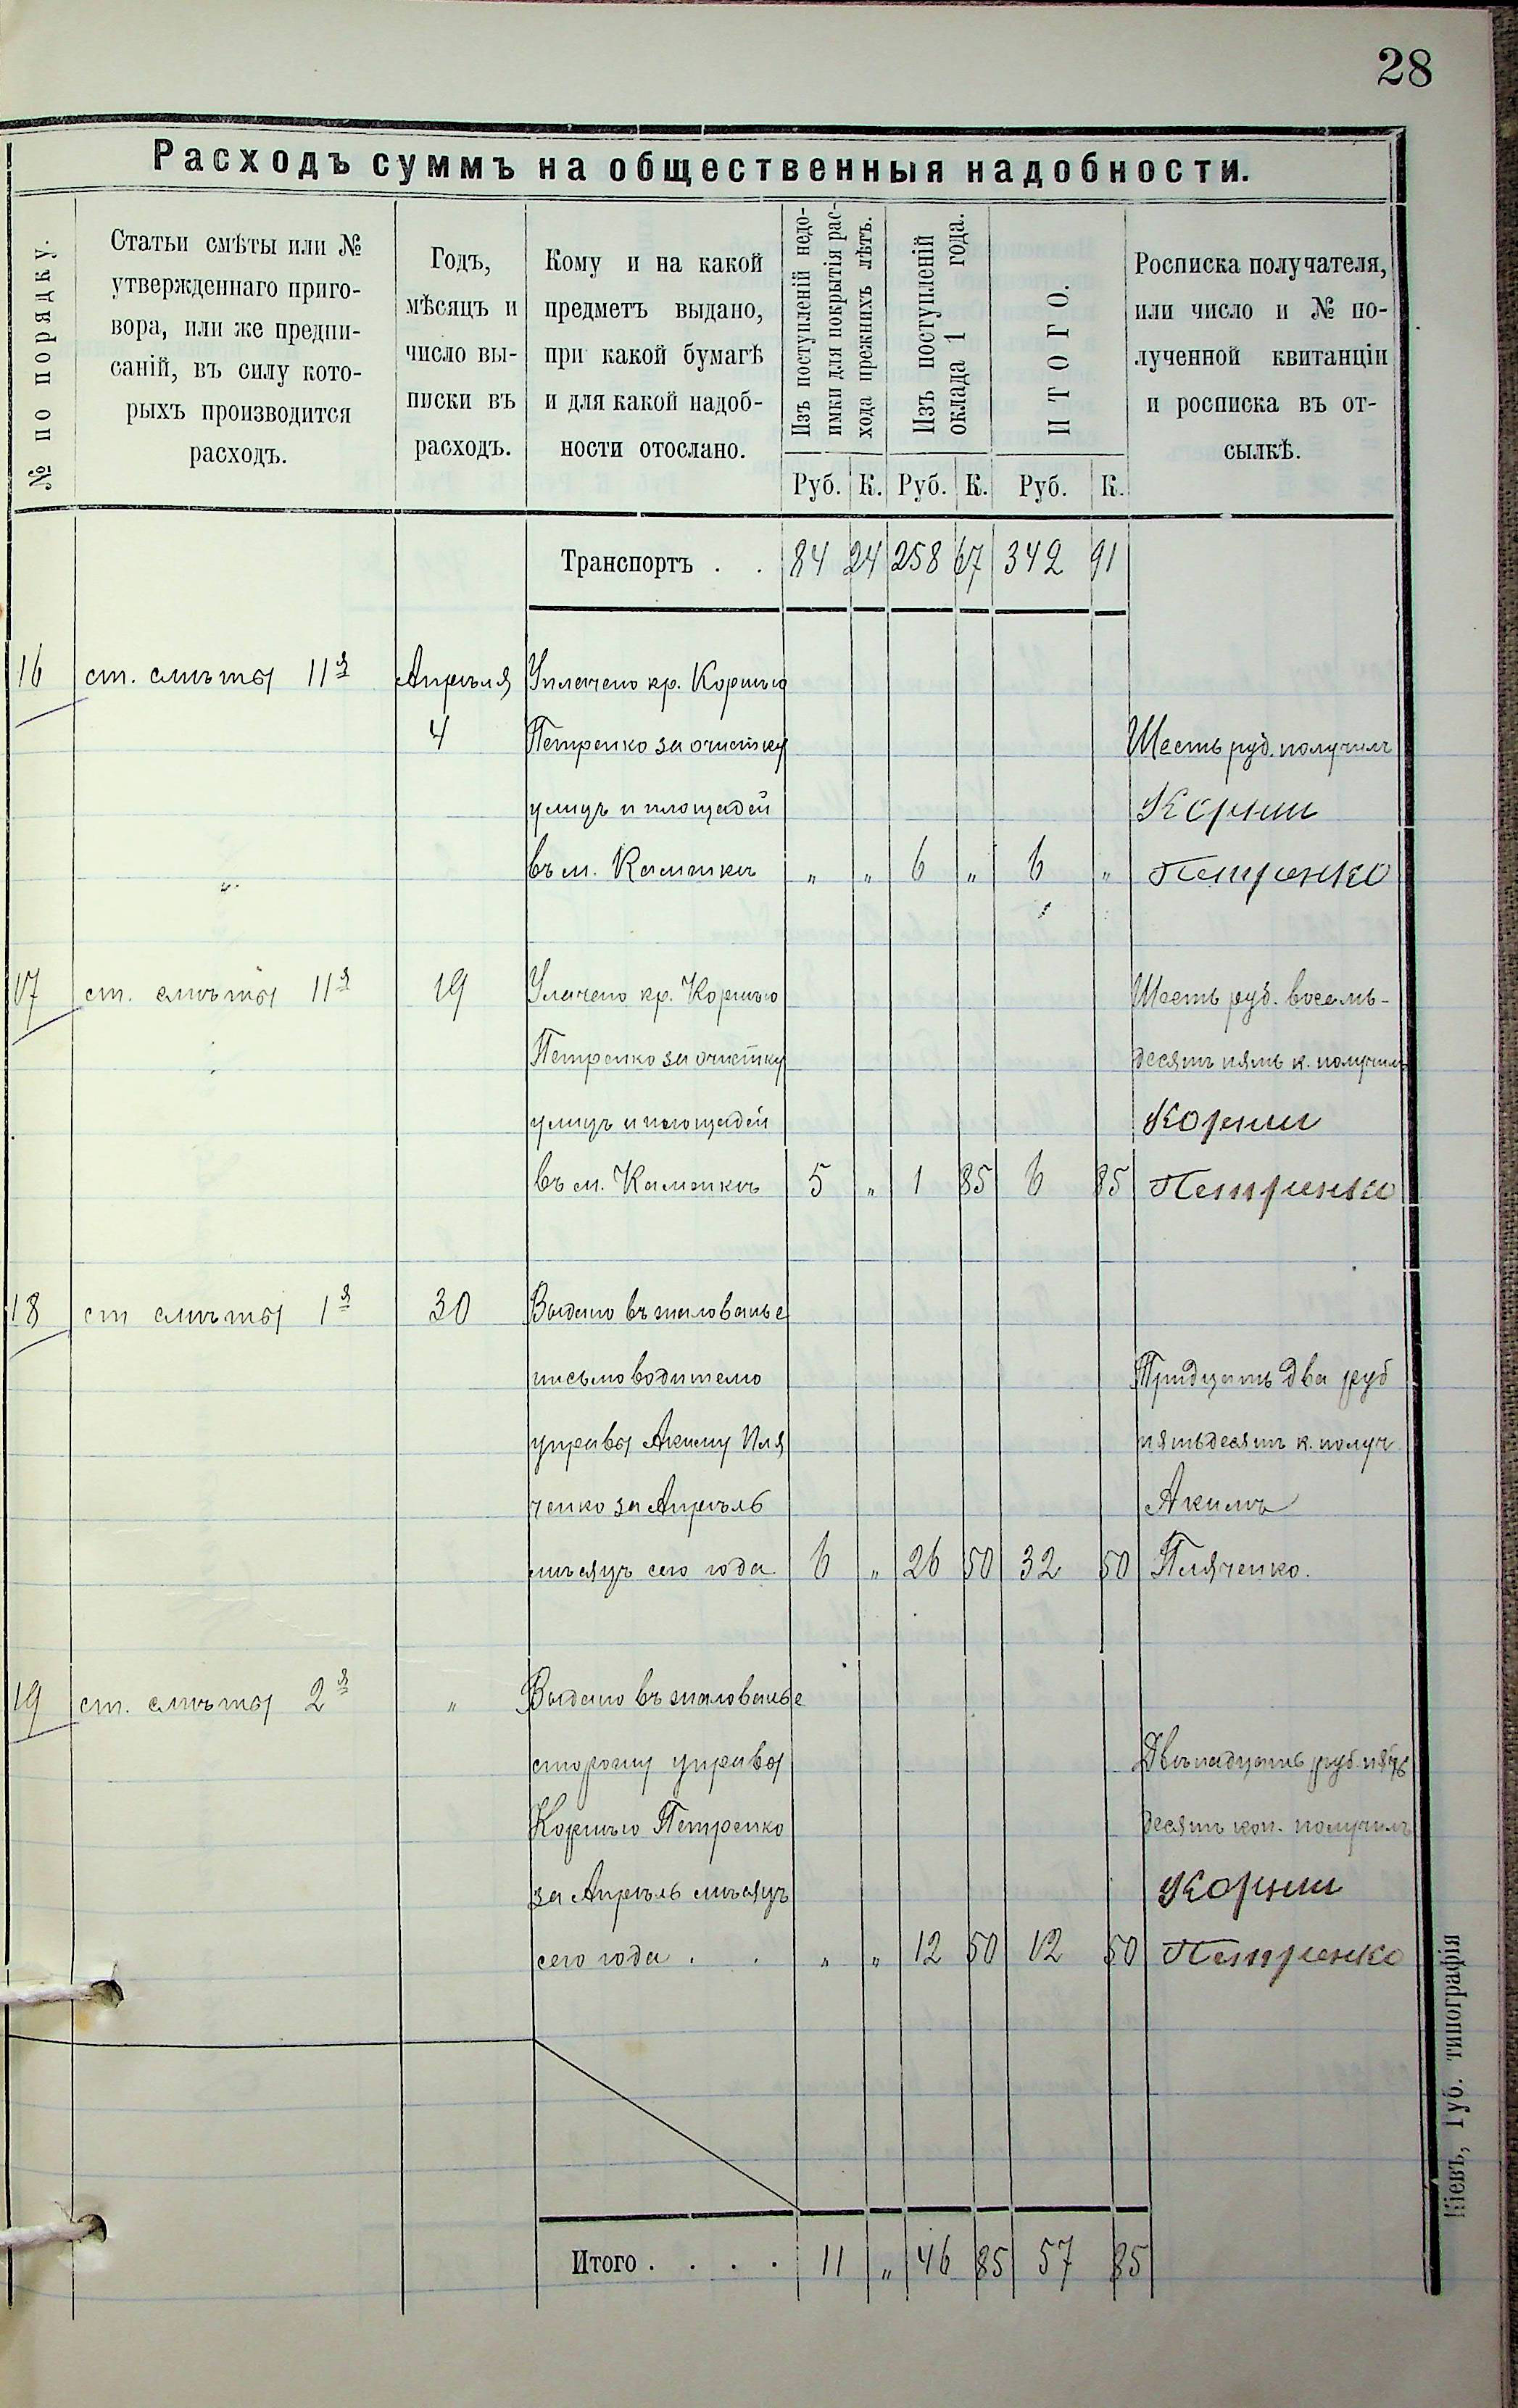 28
Расходъ суммъ на общественныя надобности.
№ по порядку.
Статьи смѣты или №
утвержденнаго приго-
вора, или же предпи-
саній, въ силу кото-
рыхъ производится
расходъ.
Годъ,
мѣсяцъ и
число вы-
писки въ
расходъ.
Кому и на какой
предметъ выдано,
при какой бумагѣ
и для какой надоб-
ности отослано.
Изъ поступленій недо-
имки для покрытія рас-
хода прежнихъ лѣтъ.
Изъ поступленій
оклада 1 года.
ИТОГО.
Росписка получателя,
или число и № по-
лученной квитанціи
и росписка въ от-
сылкѣ.
Руб. К. Руб. К. Руб. К.
Транспортъ . . 84 24 258 67 342 91
16 ст. смѣты 11я Апрѣля Уплачено кр. Корнѣю
4 Петренко за очистку Шесть руб. получилъ
улицъ и площадей Корнии
въ м. Каменкѣ „ „ 6 „ 6 „ Петренко
17 ст. смѣты 11я 19 Улачено кр. Корнѣю Шесть руб. восемь-
Петренко за очистку десятъ пять к. получилъ
улицъ и площадей Корнии
въ м. Каменкѣ 5 „ 1 85 6 85 Петренко
18 ст смѣты 1я 30 Выдано въ жалованье
письмоводителю Тридцать два руб
управы Акиму Пля пятьдесятъ к. получ
ченко за Апрѣль Акимъ
мѣсяцъ сего года 6 „ 26 50 32 50 Пляченко.
19 ст. смѣты 2я „ Выдано въ жалованье
сторожу управы Двѣнадцать руб. пять
Корнѣю Петренко десятъ коп. получилъ
за Апрѣль мѣсяцъ Корнии
сего года . . „ „ 12 50 12 50 Петренко
Итого . . . . 11 „ 46 85 57 85
Кіевъ, Губ. типографія